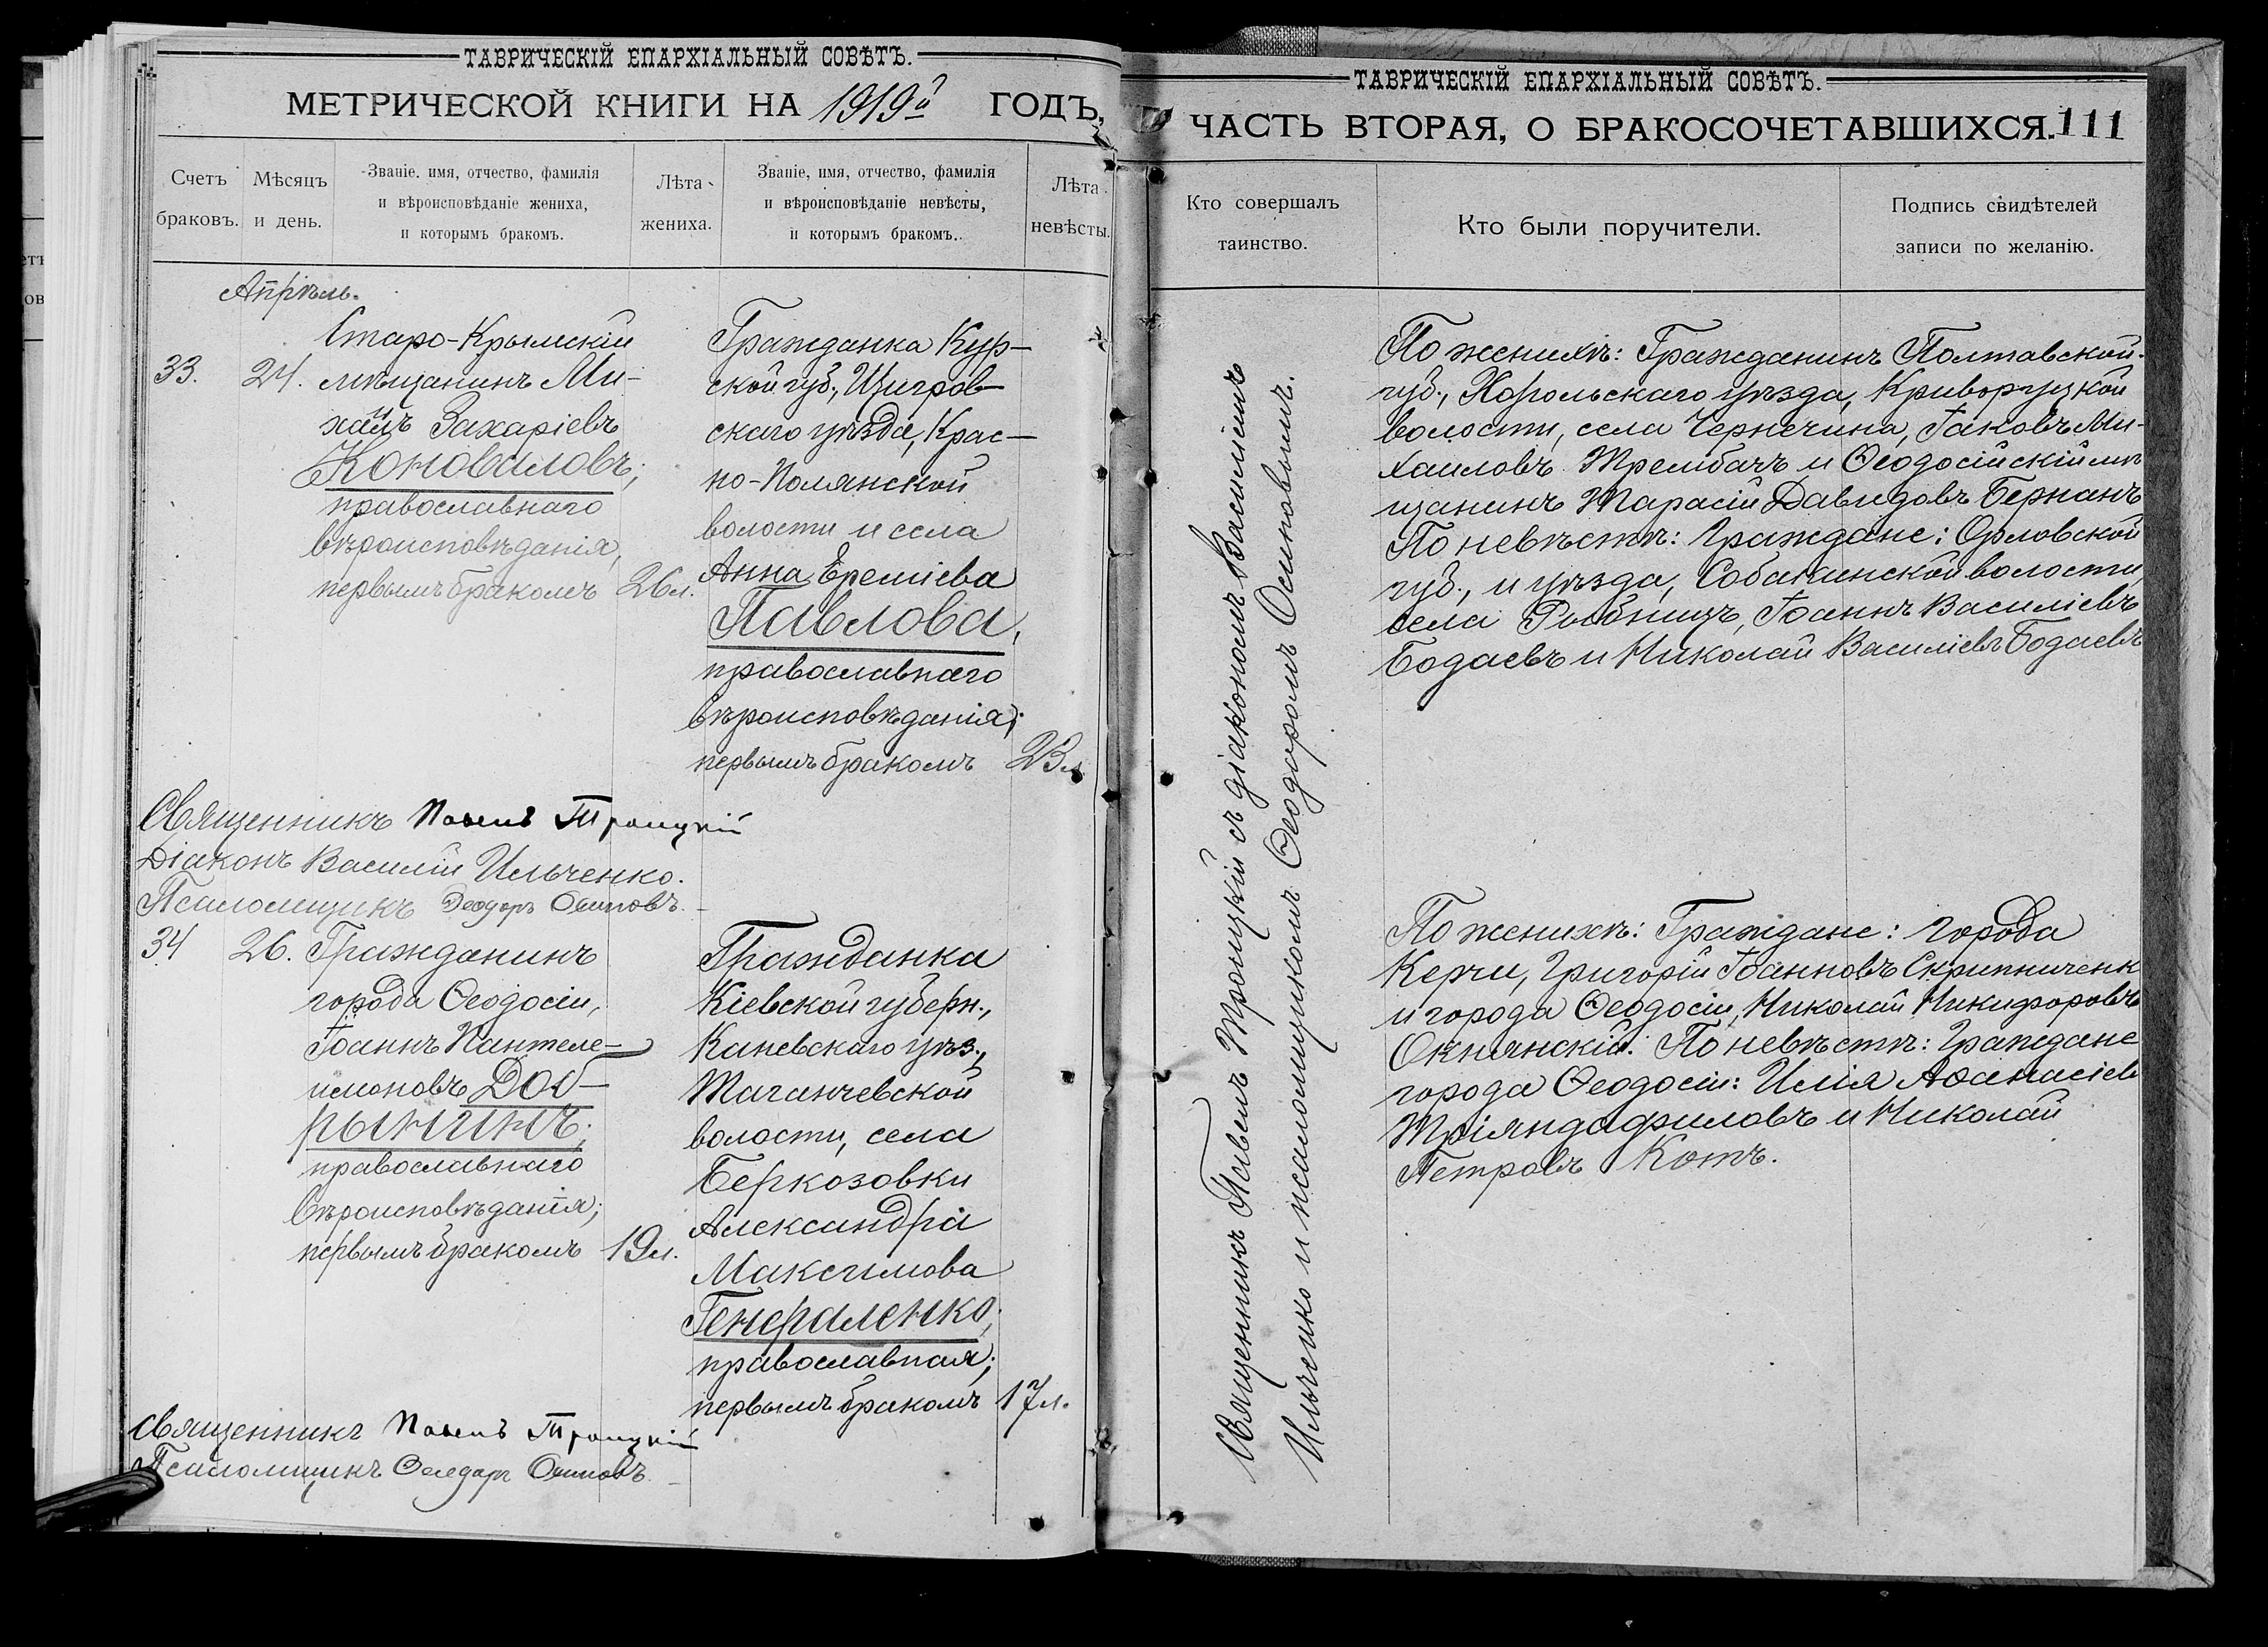 ТАВРИЧЕСКІЙ ЕПАРХІАЛЬНЫЙ СОВѢТЪ.
МЕТРИЧЕСКОЙ КНИГИ НА 1919й ГОДЪ,
Счетъ браковъ.
Мѣсяцъ и день.
Званіе, имя, отчество, фамилія
и вѣроисповѣданіе жениха,
и которымъ бракомъ.
Лѣта
жениха.
Званіе, имя, отчество, фамилія
и вѣроисповѣданіе невѣсты,
и которымъ бракомъ.
Лѣта
невѣсты.
Апрѣль.
33.
24.
Старо-Крымскій
мѣщанинъ Ми-
хаилъ Захаріевъ
Коноваловъ;
православнаго
вѣроисповѣданія,
первымъ бракомъ
26л.
Гражданка Кур-
ской губ., Щигров-
скаго уѣзда, Крас-
но-Полянской
волости и села
Анна Ереміева
Павлова,
православнаго
вѣроисповѣданія;
первымъ бракомъ
23л
Священникъ Павелъ Троицкій
Діаконъ Василій Ильченко.
Псаломщикъ Ѳеодоръ Осиповъ.
34
26.
Гражданинъ
города Ѳеодосіи,
Іоаннъ Пантеле-
имоновъ Доб-
рынинъ;
православнаго
вѣроисповѣданія;
первымъ бракомъ
19л.
Гражданка
Кіевской губерн.,
Каневскаго уѣз.,
Таганчевской
волости, села
Беркозовки
Александра
Максимова
Генераленко;
православная;
первымъ бракомъ
17л.
Священникъ Павелъ Троицкій
Псаломщикъ Ѳеодоръ Осиповъ
ТАВРИЧЕСКІЙ ЕПАРХІАЛЬНЫЙ СОВѢТЪ.
ЧАСТЬ ВТОРАЯ, О БРАКОСОЧЕТАВШИХСЯ.
111
Кто совершалъ
таинство.
Кто были поручители.
Подпись свидѣтелей
записи по желанію.
Священникъ Павелъ Троицкій съ діакономъ Василіемъ
Ильченко и псаломщикомъ Ѳеодоромъ Осиповымъ.
По женихѣ: Гражданинъ Полтавской
губ., Хорольскаго уѣзда, Криворуцкой
волости, села Чернечина, Іаковъ Ми-
хаиловъ Трембачъ и Ѳеодосійскій мѣ
щанинъ Тарасій Давидовъ Бернанъ
По невѣстѣ: Граждане: Орловской
губ., и уѣзда, Собакинской волости,
села Рыбницъ, Іоаннъ Василіевъ
Бодаевъ и Николай Василіевъ Бодаевъ
По женихѣ: Граждане: города
Керчи, Григорій Іоанновъ Скрипниченк
и города Ѳеодосіи, Николай Никифоровъ
Окнянскій. По невѣстѣ: Граждане
города Ѳеодосіи: Илія Аѳанасіев
Тріяндафиловъ и Николай
Петровъ Котъ.